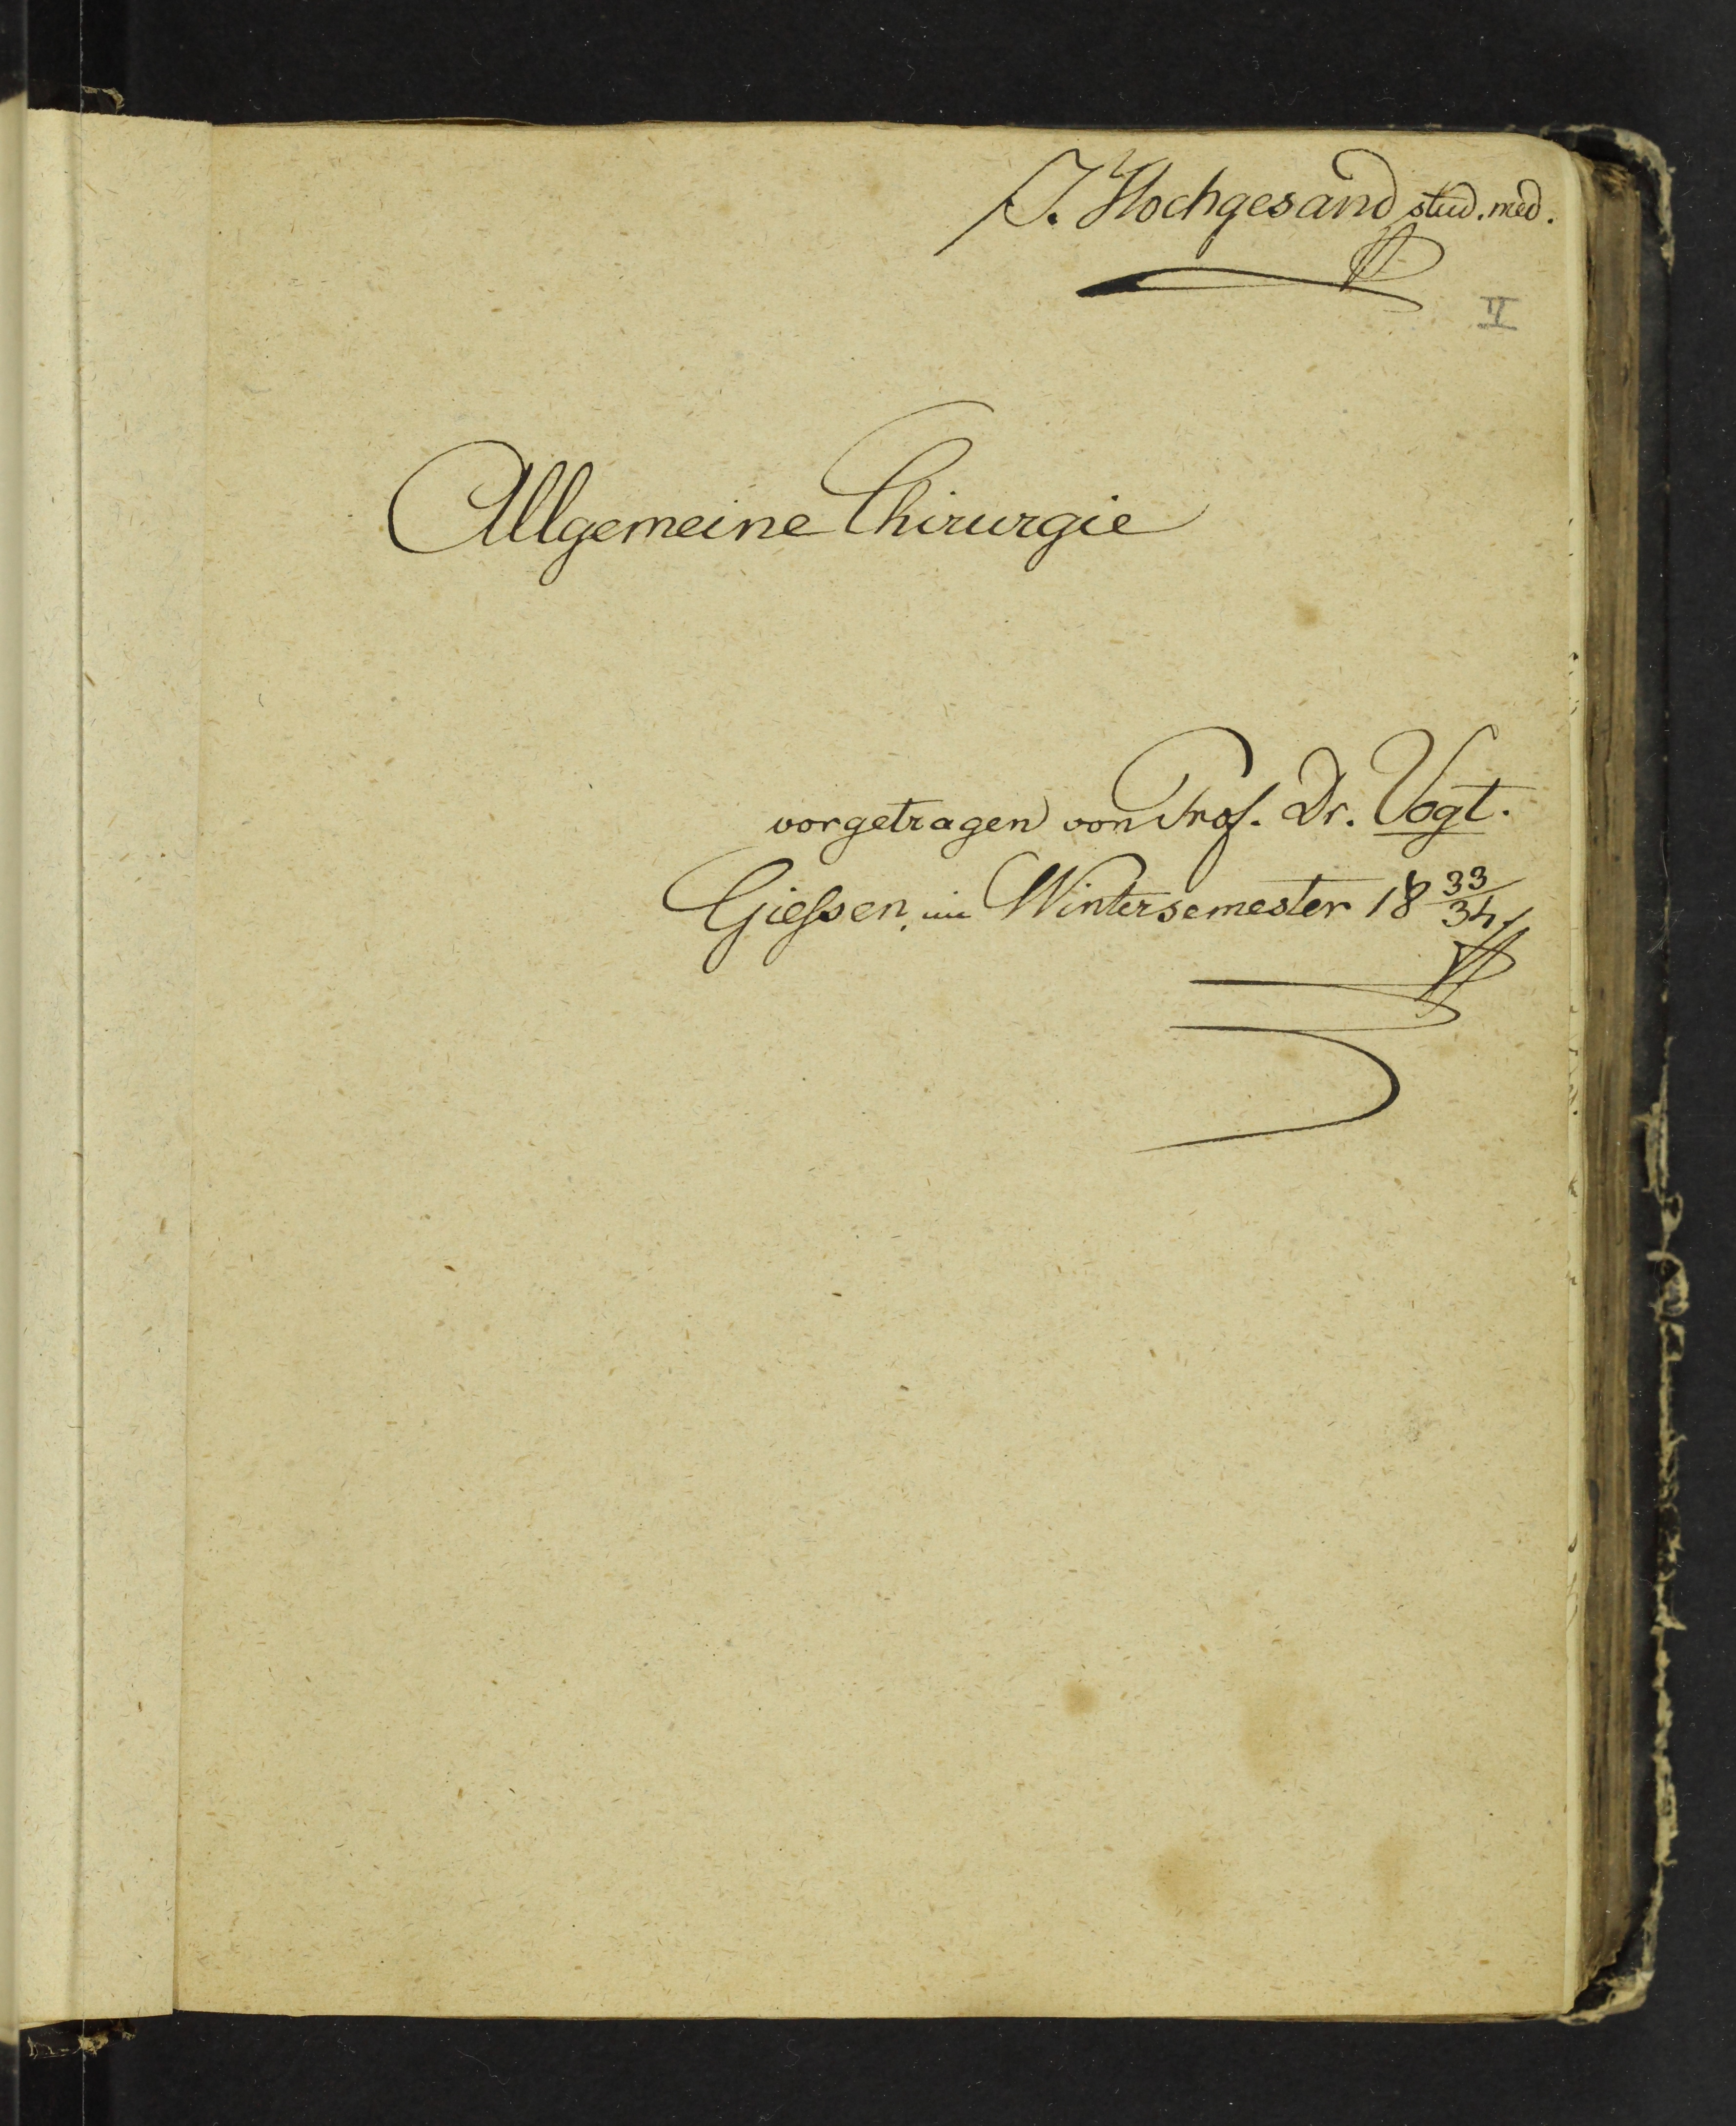 J. Hochgesand stud. med.
II
Allgemeine Chirurgie
vorgetragen von Prof. Dr. Vogt.
Giessen, im Wintersemester 18 33/34